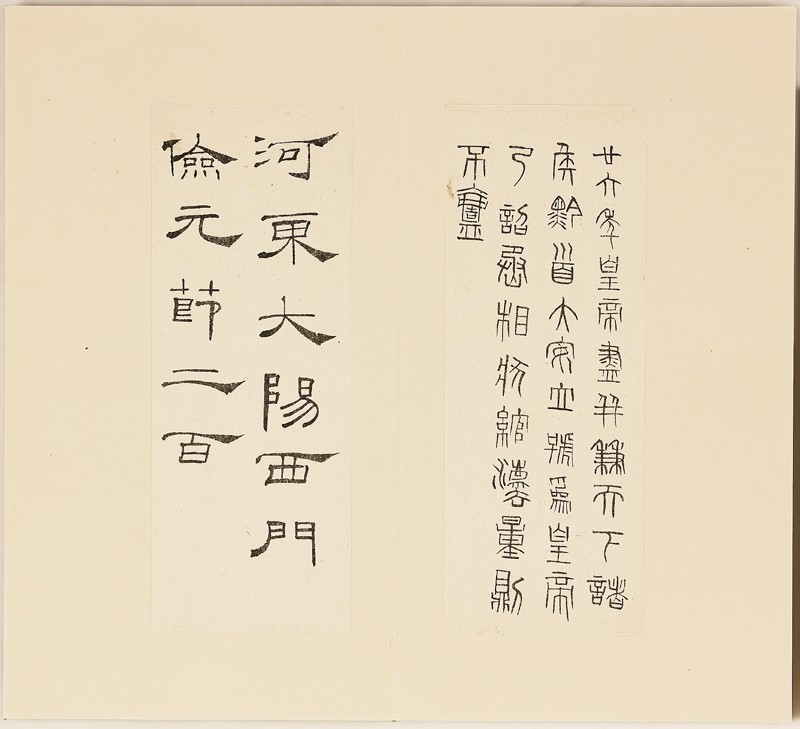 廿六年皇帝盡并兼天下諸
侯黔首大安立號爲皇帝
乃詔丞相狀綰灋量則
不壹
河東大陽西門
儉元節二百